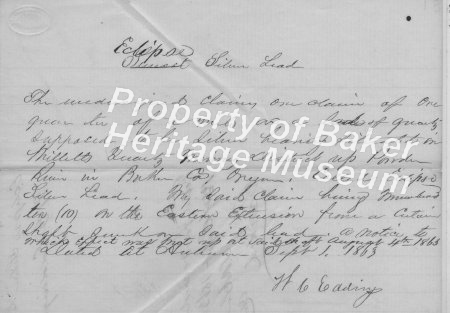 Eclipse
Silver Lead
The undersigned claims one claim of one
quarter of quartz
supposed to Silver
Quartz up Powder
River in Baker Co Oregon
Silver Lead. My said claim being numbered
ten (10) on the Eastern Extension from a certain
Shaft sunk on said lead. a notice to
which effect was put up at said shaft August 4th 1863
Dated at Auburn Sept 1, 1863
W C Eddings
Property of Baker
Heritage Museum